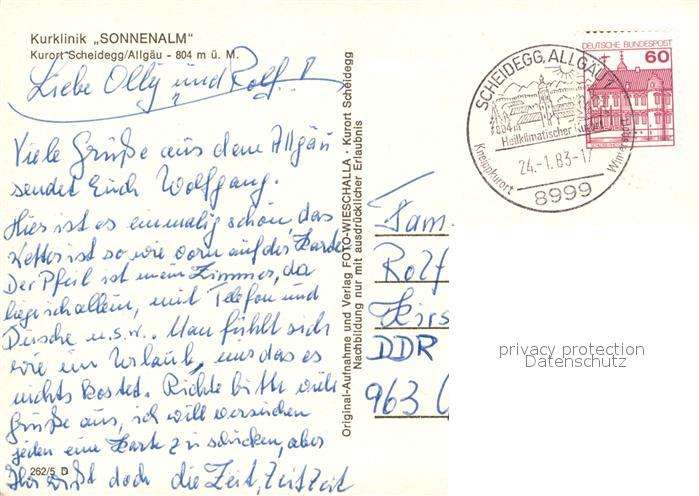 Kurklinik „SONNENALM"
Kurort Scheidegg/Allgäu - 804 m ü. M.
Liebe Olly und Rolf!
Viele Grüße aus dem Allgäu
sendet Euch Wolfgang.
Hier ist es einmalig schön, das
Wetter ist so, wie vorn auf der Karte
Der Pfeil ist mein Zimmer, da
liege ich allein, mit Telefon und
Dusche u.s.w.. Man fühlt sich
wie im Urlaub, nur das es
nichts kostet. Richte bitte viele
Grüße aus, ich will versuchen
jeden eine Karte zu schicken, aber
Ihr wißt doch die Zeit, Zeit Zeit
262/5 D
Original-Aufnahme und Verlag FOTO-WIESCHALLA · Kurort Scheidegg
Nachbildung nur mit ausdrücklicher Erlaubnis
DEUTSCHE BUNDESPOST
60
SCHEIDEGG, ALLGÄU
804 m
Heilklimatischer Kurort
24.-1.83-17
Kneippkurort
8999
Fam.
Rolf
Hirs
DDR
963
privacy protection
Datenschutz